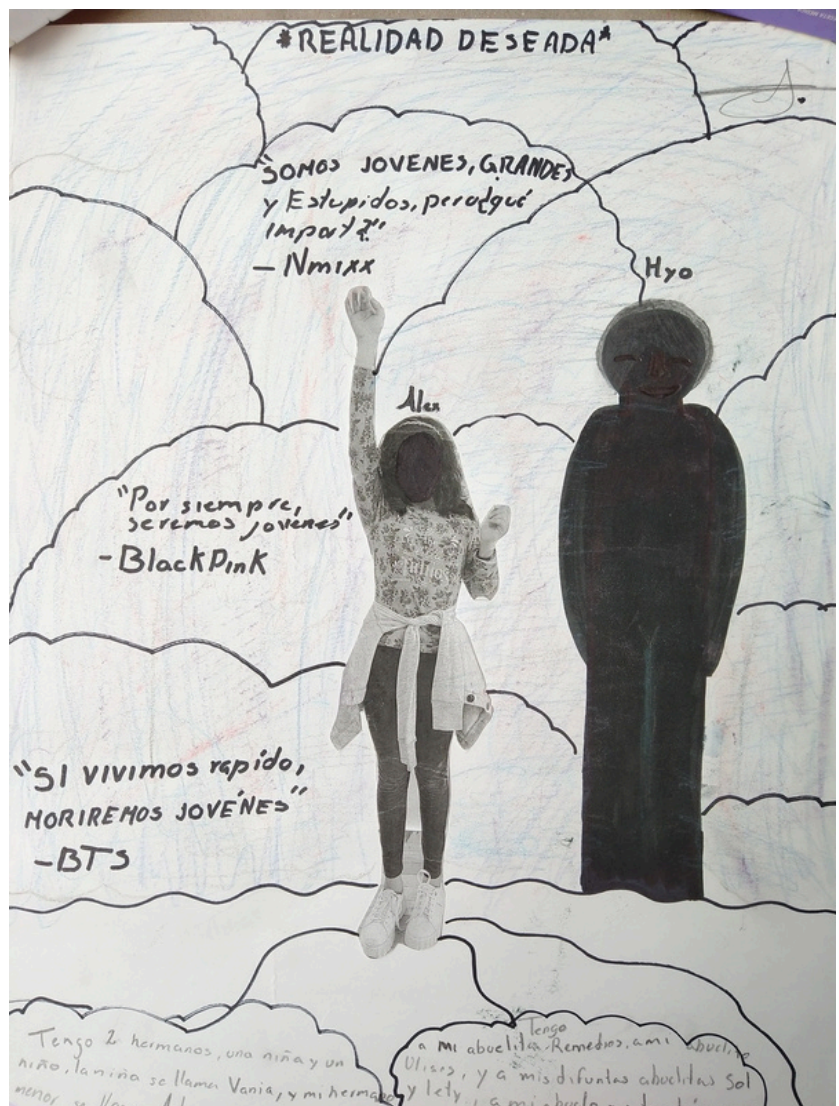 *REALIDAD DESEADA*
"SOMOS JOVENES, GRANDES
y Estupidos, pero¿qué
importa?"
- Nmixx
Hyo
Alex
"Por siempre,
seremos jovenes"
- BlackPink
"SI VIVIMOS rapido,
MORIREMOS JOVÉNES"
- BTS
Tengo 2 hermanos, una niña y un
niño, la niña se llama Vania, y mi hermano
menor se llama
Tengo
a mi abuelita Remedios, a mi abuelito
Ulises, y a mis difuntas abuelitas Sol
y lety, a mi abuelo